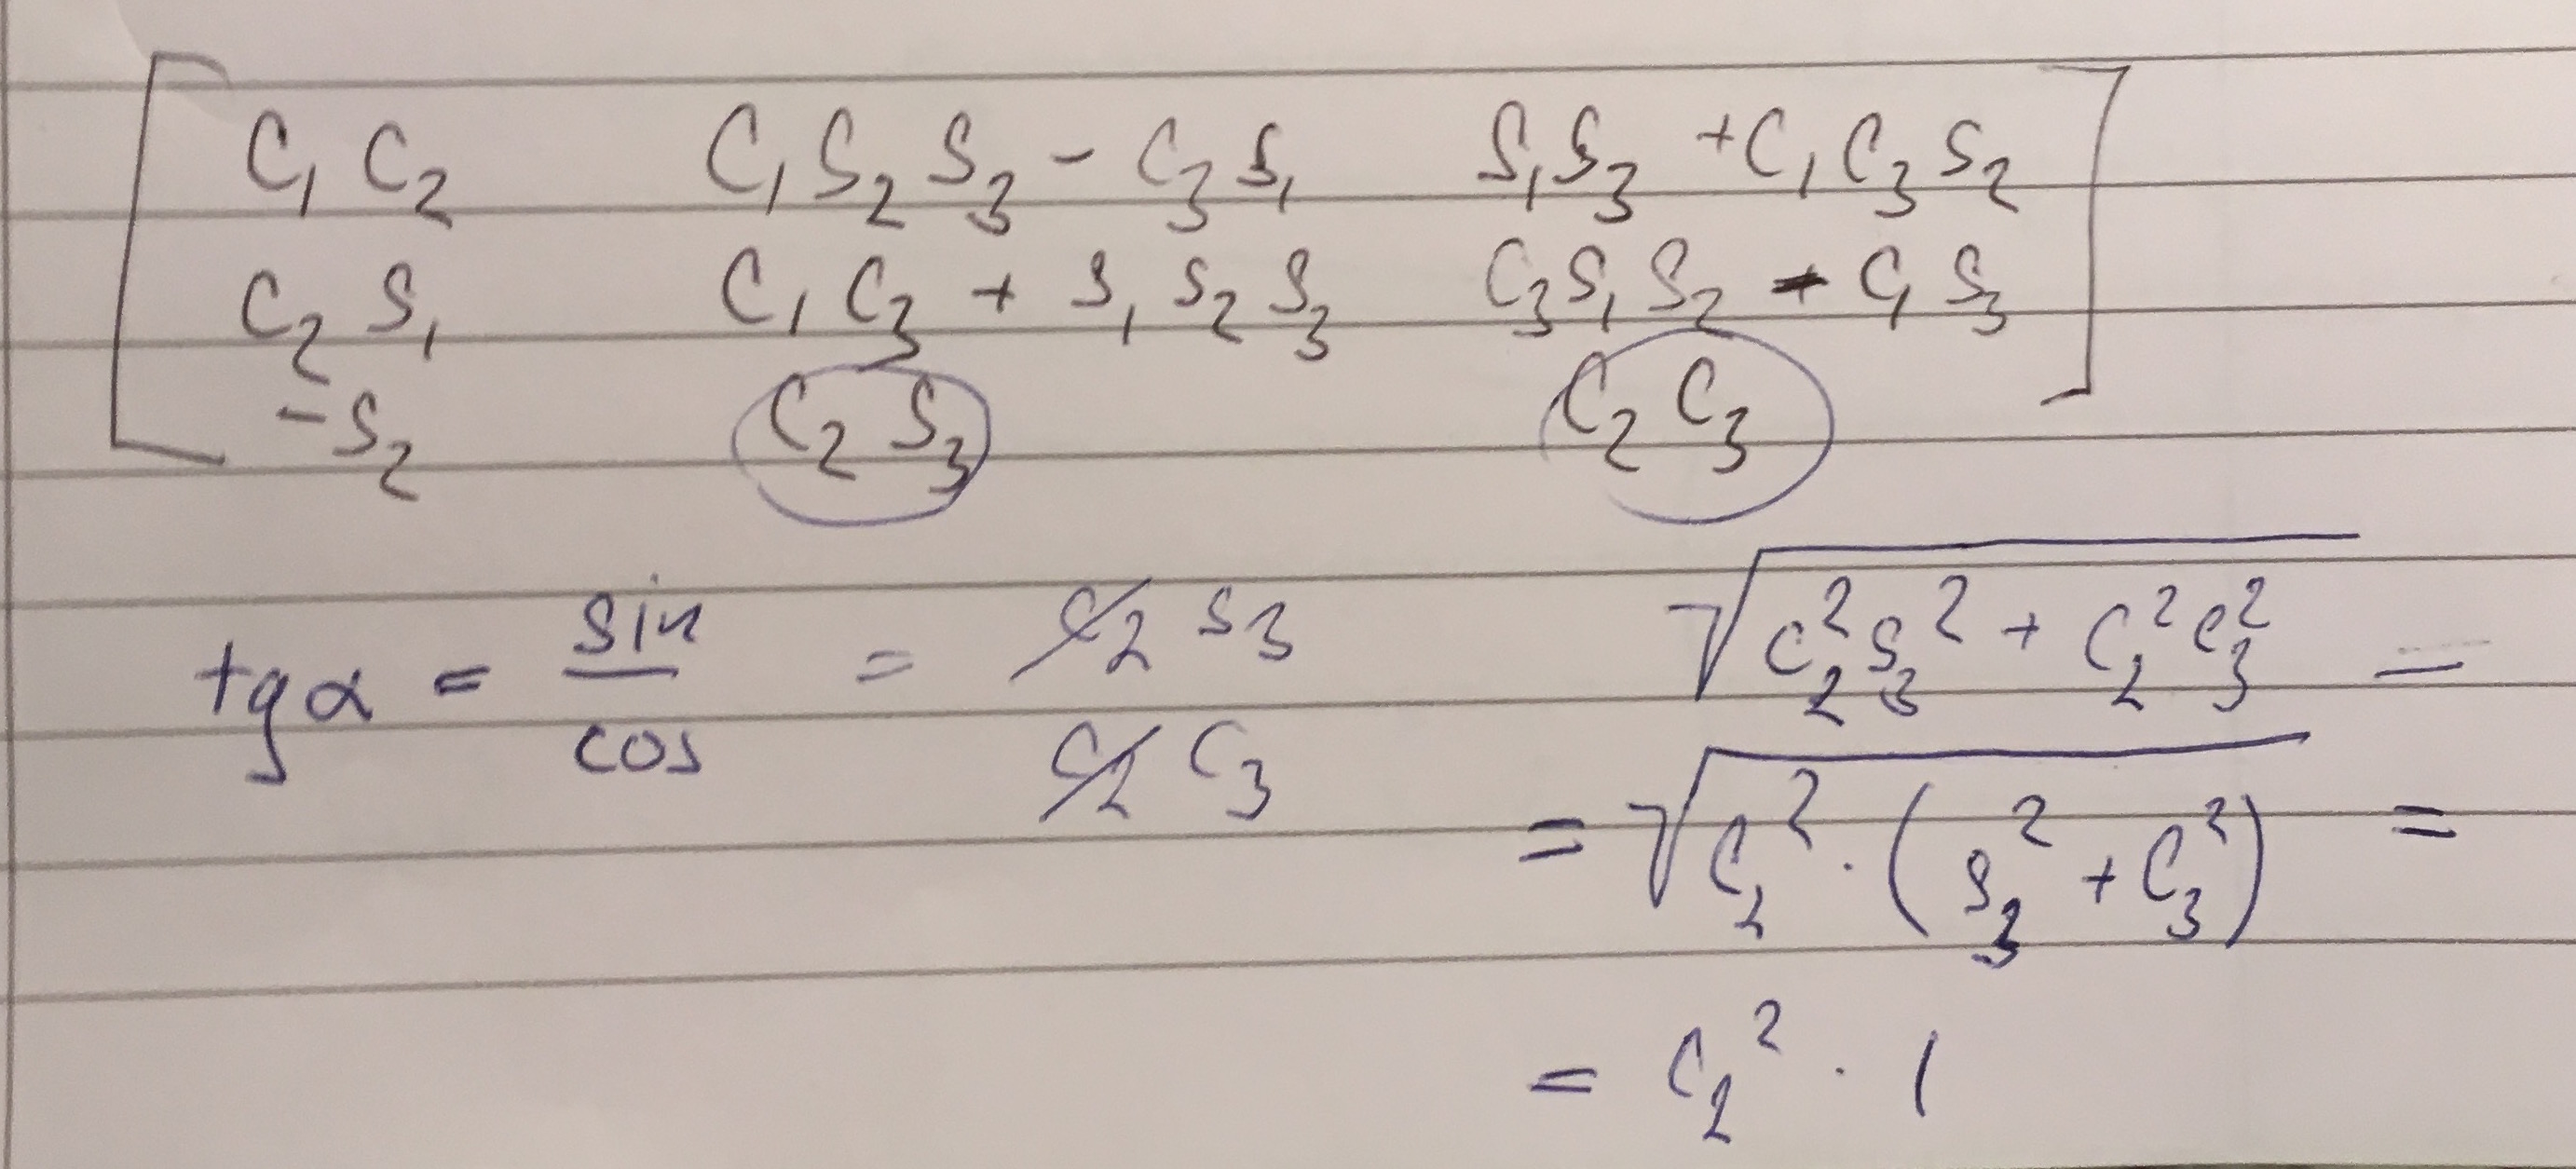 C₁ C₂   C₁ S₂ S₃ - C₃ S₁   S₁ S₃ + C₁ C₃ S₂
C₂ S₁   C₁ C₃ + S₁ S₂ S₃   C₃ S₁ S₂ - C₁ S₃
-S₂   C₂ S₃   C₂ C₃
tg α = sin / cos = C₂ S₃ / C₂ C₃
√(C₂² S₃² + C₂² C₃²) =
= √(C₂² · (S₃² + C₃²)) =
= C₂² · 1